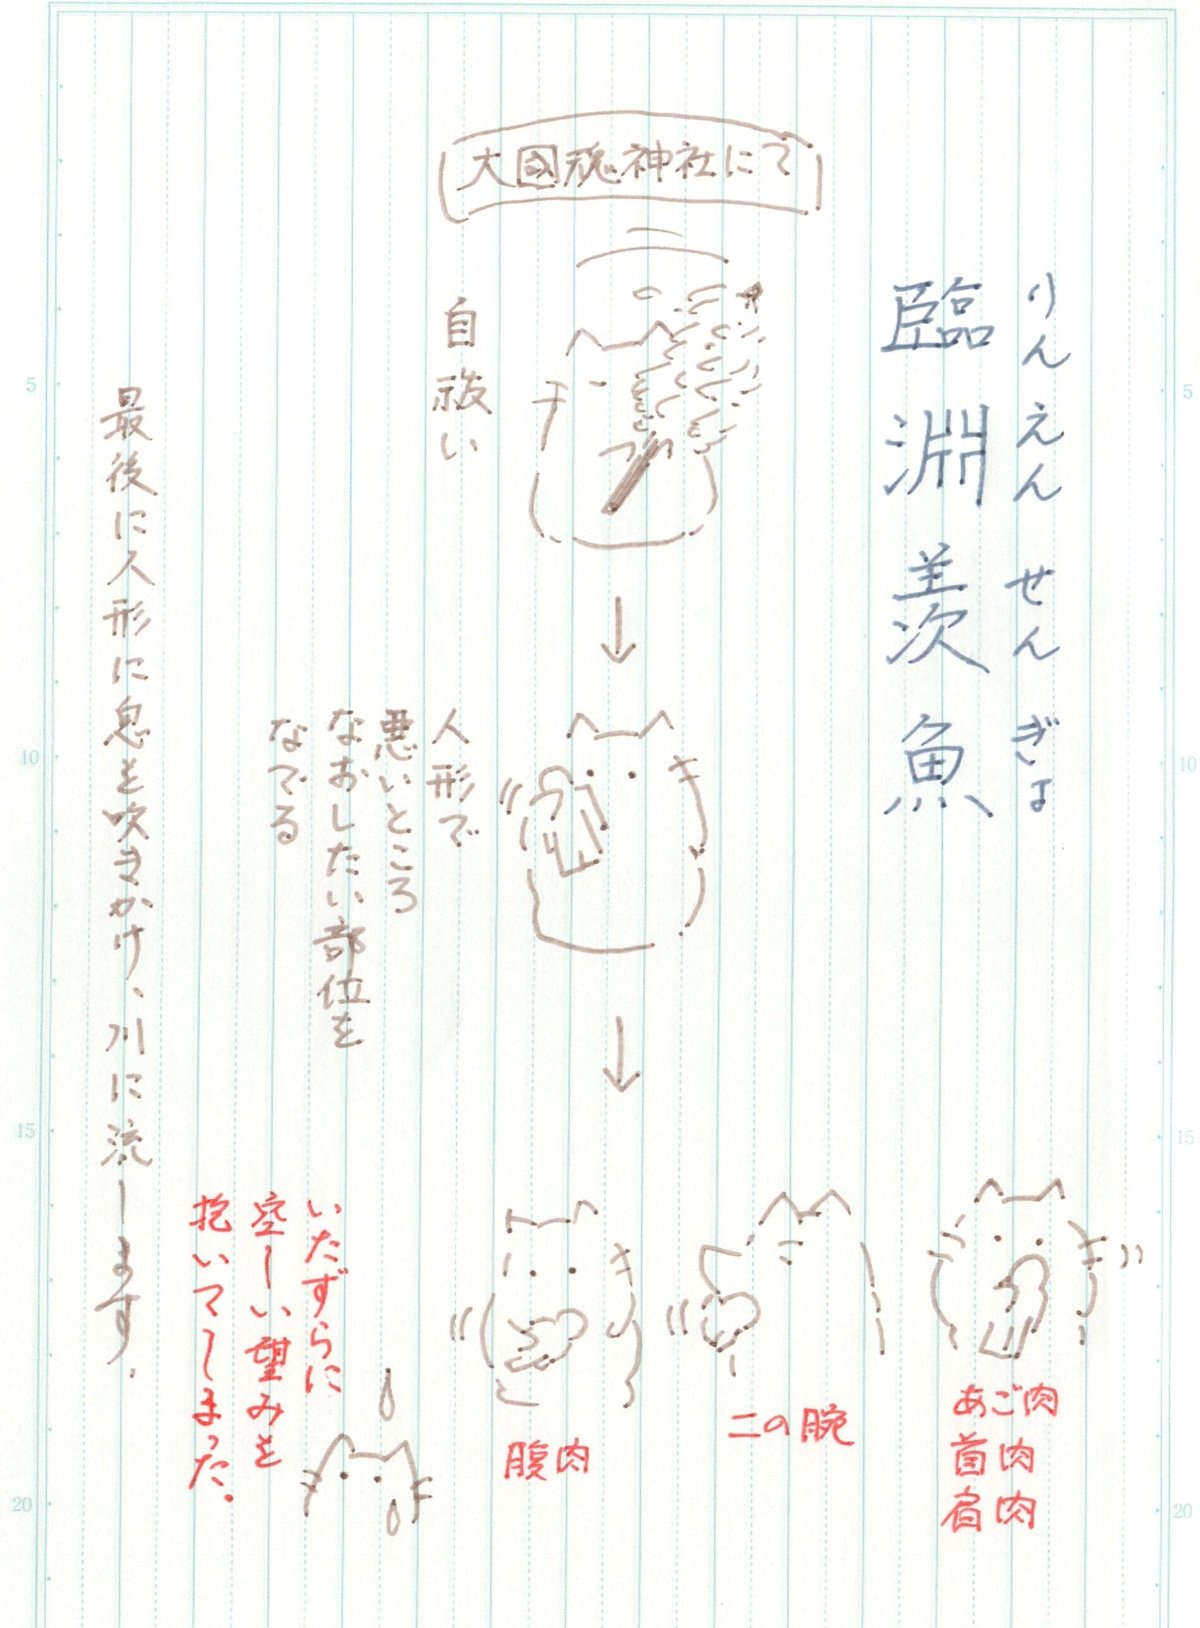 りんえんせんぎょ
臨淵羨魚
大國魂神社にて
自祓い
人形で
悪いところ
なおしたい部位を
なでる
あご肉
首肉
肩肉
二の腕
腹肉
いたずらに
空しい望みを
抱いてしまった。
最後に人形に息を吹きかけ、川に流します。
5
10
15
20
5
10
15
20